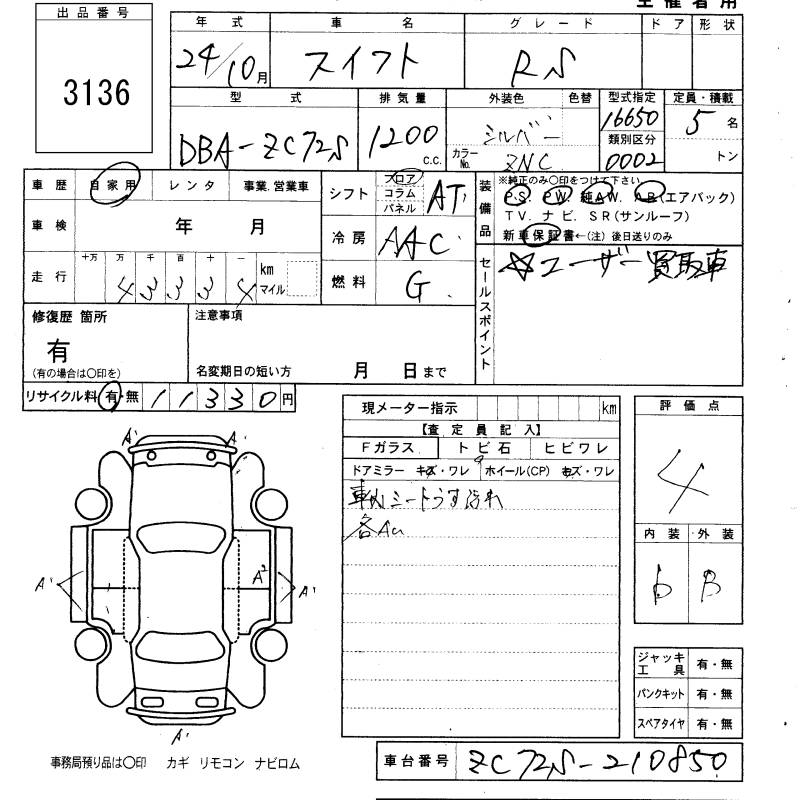 主催者用
出品番号
3136
年式 車名 グレード ドア 形状
24/10月 スイフト RS
型式 排気量 外装色 色替 型式指定 定員・積載
DBA-ZC72S 1200 c.c. シルバー 16650 5名
カラーNo. ZNC 類別区分 0002 トン
車歴 自家用 レンタ 事業.営業車
車検 年 月
走行 十万 万 千 百 十 一 km マイル
4 3 3 3 4
シフト フロア コラム パネル AT
冷房 AAC
燃料 G.
装備品
※純正のみ○印をつけて下さい
P.S. P.W. 純A.W. A.B(エアバック)
T.V. ナビ. S.R(サンルーフ)
新車保証書←(注) 後日送りのみ
セールスポイント
☆ユーザー買取車
修復歴 箇所
有
(有の場合は○印を)
注意事項
名変期日の短い方 月 日まで
リサイクル料 有・無 11330円
現メーター指示 km
【査定員記入】
Fガラス トビ石 ヒビワレ
ドアミラー キズ・ワレ ホイール(CP) キズ・ワレ
車内シートうす汚れ
各Au
評価点
4
内装・外装
b B
A' A'
A' A² A'
A'
ジャッキ工具 有・無
パンクキット 有・無
スペアタイヤ 有・無
事務局預り品は○印 カギ リモコン ナビロム
車台番号 ZC72S-210850